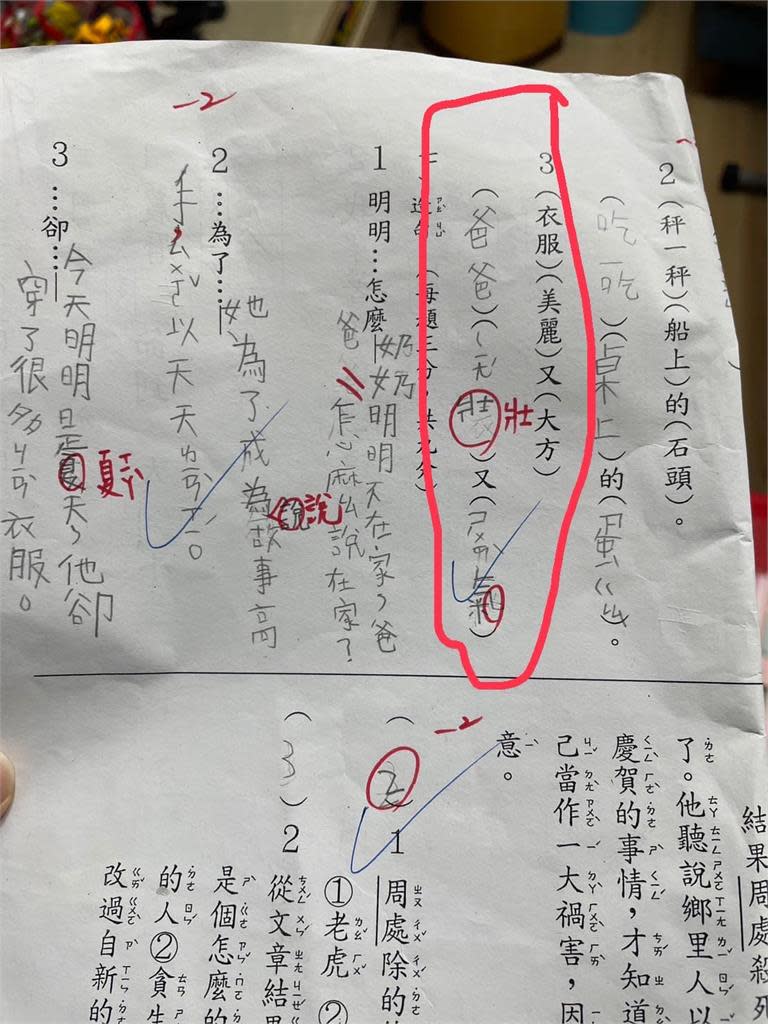 2（秤一秤）（船上）的（石頭）。
（吃一吃）（桌上）的（蛋ㄍㄠ）。
3（衣服）（美麗）又（大方）
（爸爸）（ㄑㄧㄤˊ壯）又（ㄕㄨㄞˋ氣）
壯
（每題三分，共九分）
1 明明…怎麼
奶奶明明不在家，爸
爸怎麼說在家？
-2
2 …為了…
她為了成為說故事高
說
手，ㄙㄨㄛˇ以天天
3 …卻…
今天明明是夏天，他卻
夏
穿了很多ㄏㄡˋ衣服。
結果周處殺死
了。他聽說鄉里人以
慶賀的事情，才知道
己當作一大禍害，因
意。
-2
1 周處除的
①老虎 ②
（3）2 從文章結
是個怎麼的
的人②貪生
改過自新的